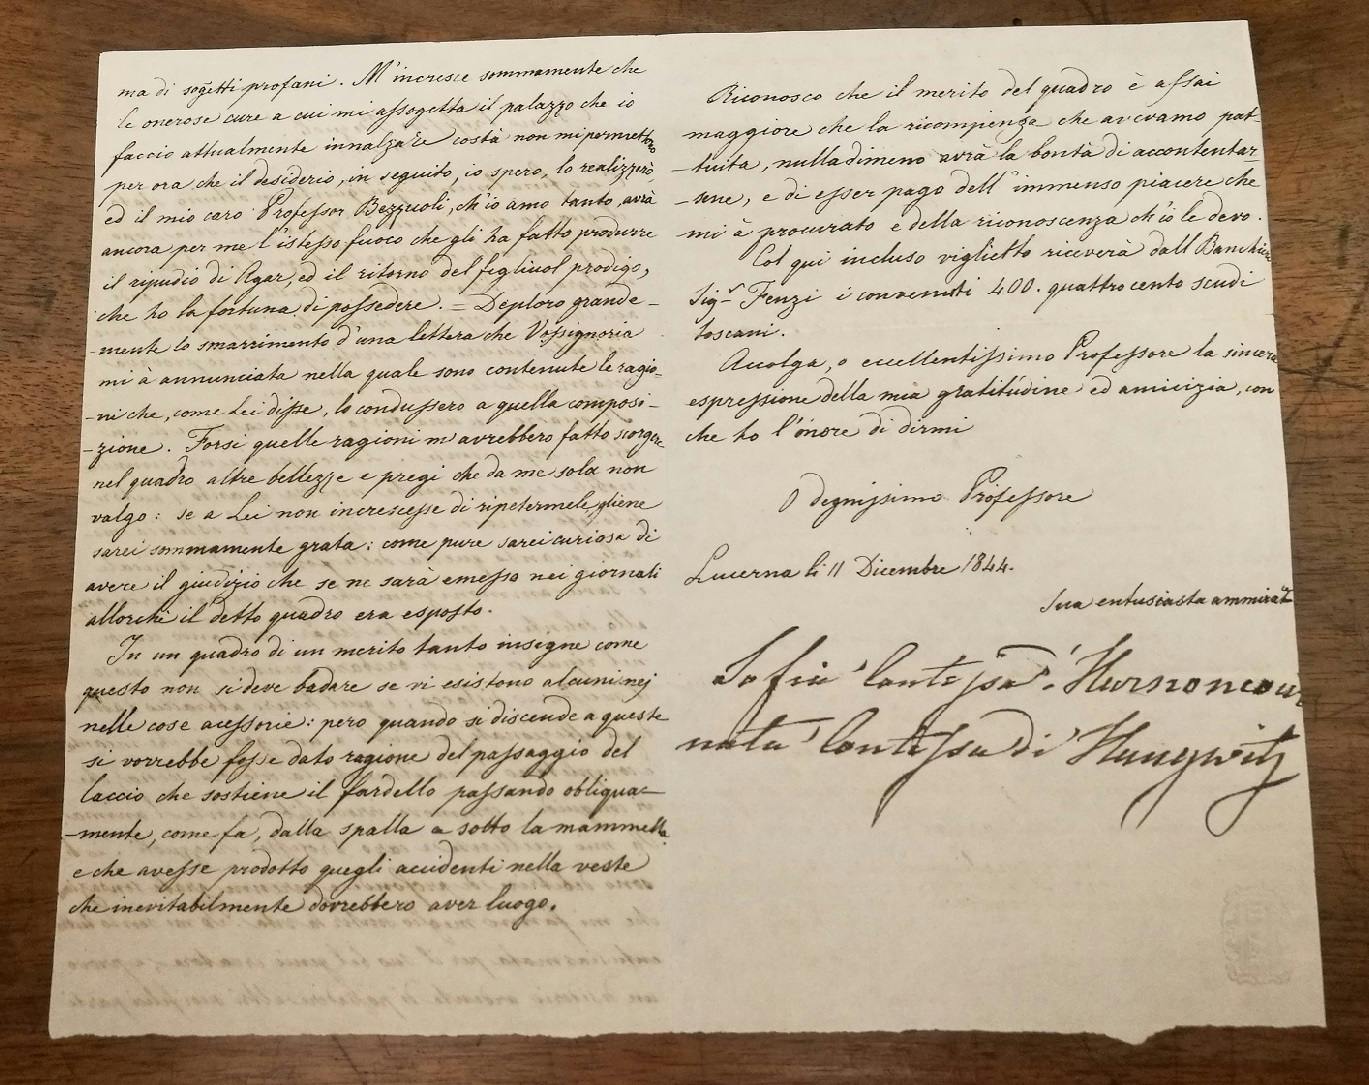 ma di sogetti profani. M'incresce sommamente che
le onerose cure a cui mi assogetta il palazzo che io
faccio attualmente innalzare costà non mi permettono
per ora che il desiderio, in seguito, io spero, lo realizzerò,
ed il mio caro Professor Bezzuoli, ch'io amo tanto, avrà
ancora per me l'istesso fuoco che gli ha fatto produrre
il ripudio di Agar, ed il ritorno del figliuol prodigo,
che ho la fortuna di possedere. = Deploro grande-
-mente lo smarrimento d'una lettera che Vossignoria
mi à annunciata nella quale sono contenute le ragio-
-ni che, come Lei disse, lo condussero a quella composi-
-zione. Forsi quelle ragioni m'avrebbero fatto scorgere
nel quadro altre bellezze e pregi che da me sola non
valgo: se a Lei non increscesse di ripetermele, gliene
sarei sommamente grata: come pure sarei curiosa di
avere il giudizio che se ne sarà emesso nei giornali
allorchè il detto quadro era esposto.
In un quadro di un merito tanto insigne come
questo non si deve badare se vi esistono alcuni nej
nelle cose acessorie: però quando si discende a queste
si vorrebbe fosse dato ragione del passaggio del
laccio che sostiene il fardello passando obliqua-
-mente, come fa, dalla spalla a sotto la mammella
e che avesse prodotto quegli accidenti nella veste
che inevitabilmente dovrebbero aver luogo.
Riconosco che il merito del quadro è assai
maggiore che la ricompenza che avevamo pat-
-tuita, nulladimeno avrà la bontà di accontentar-
-sene, e di esser pago dell'immenso piacere che
mi à procurato e della riconoscenza ch'io le devo.
Col qui incluso viglietto riceverà dall Banchiere
Sigr. Fenzi i convenuti 400. quattrocento scudi
toscani.
Accolga, o eccellentissimo Professore la sincera
espressione della mia gratitudine ed amicizia, con
che ho l'onore di dirmi
O degnissimo Professore
Lucerna li 11 Dicembre 1844.
Sua entusiasta ammirat.
Sofia Contessa Hurnoncourt
nata Contessa di Haugwitz